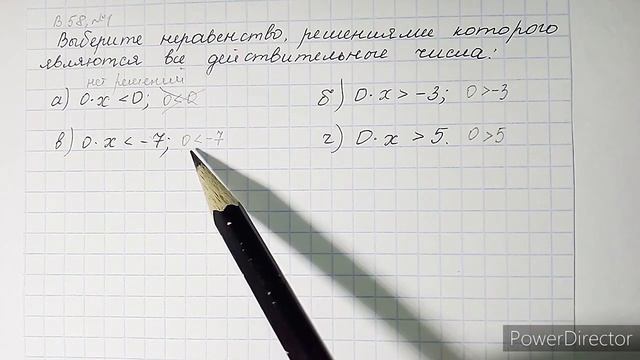 В58, №1
Выберите неравенство, решениями которого
являются все действительные числа:
нет решений
а) 0·x < 0; 0<0
б) 0·x > -3; 0>-3
в) 0·x < -7; 0<-7
г) 0·x > 5. 0>5
PowerDirector